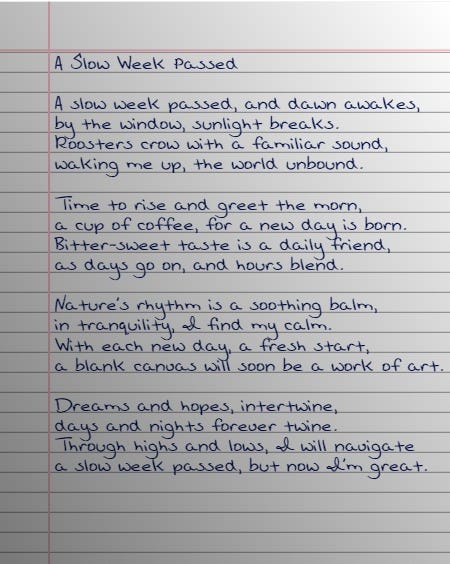 A Slow Week Passed
A slow week passed, and dawn awakes,
by the window, sunlight breaks.
Roosters crow with a familiar sound,
waking me up, the world unbound.
Time to rise and greet the morn,
a cup of coffee, for a new day is born.
Bitter-sweet taste is a daily friend,
as days go on, and hours blend.
Nature's rhythm is a soothing balm,
in tranquility, I find my calm.
With each new day, a fresh start,
a blank canvas will soon be a work of art.
Dreams and hopes, intertwine,
days and nights forever twine.
Through highs and lows, I will navigate
a slow week passed, but now I'm great.